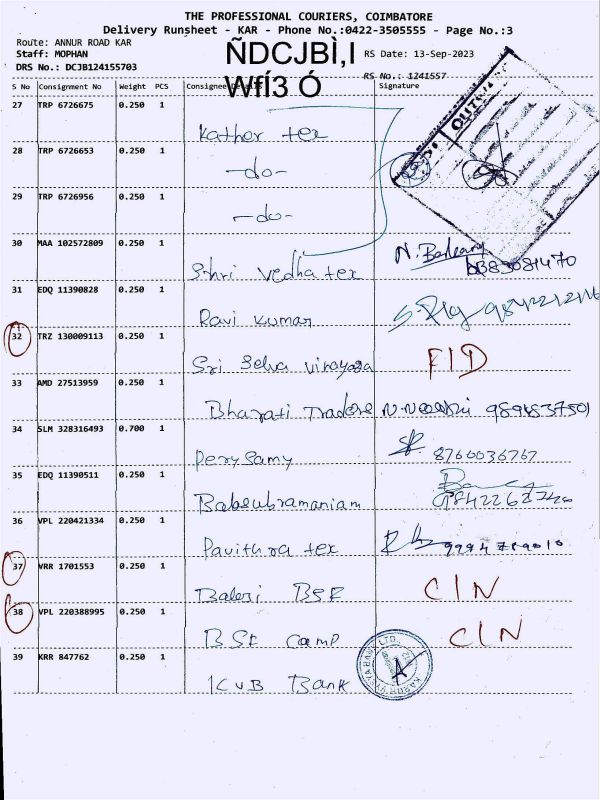 THE PROFESSIONAL COURIERS, COIMBATORE
Delivery Runsheet - KAR - Phone No.:0422-3505555 - Page No.:3
Route: ANNUR ROAD KAR
Staff: MOPHAN
DRS No.: DCJB124155703
ÑDCJBÌ,I
WfÍ3 Ó
RS Date: 13-Sep-2023
RS No.: 1241557
S No Consignment No Weight PCS Consignee Details Signature
27 TRP 6726675 0.250 1 Kather tex
28 TRP 6726653 0.250 1 -do-
29 TRP 6726956 0.250 1 -do-
30 MAA 102572809 0.250 1 Sthri Vedha tex
31 EDQ 11390828 0.250 1 Ravi Kumar
32 TRZ 130009113 0.250 1 Sri Selva Vinayaga
33 AMD 27513959 0.250 1 Bharati Traders
34 SLM 328316493 0.700 1 Perysamy 8760036767
35 EDQ 11390511 0.250 1 Balasubramaniam
36 VPL 220421334 0.250 1 Pavithra tex
37 VRR 1701553 0.250 1 Baleri BSE C/N
38 VPL 220388995 0.250 1 BSE Camp C/N
39 KRR 847762 0.250 1 KVB Bank
OUTWARD